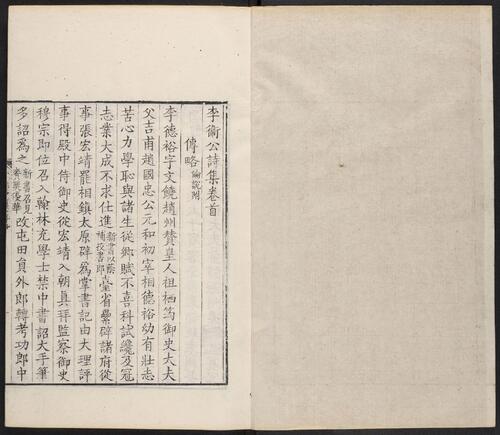 李衞公詩集卷首
傳略論說附
李德裕字文饒趙州贊皇人祖栖筠御史大夫
父吉甫趙國忠公元和初宰相德裕幼有壯志
苦心力學恥與諸生從鄉賦不喜科試纔及冠
志業大成不求仕進新書以蔭補校書郎臺省纍辟諸府從
事張宏靖罷相鎮太原辟爲掌書記由大理評
事得殿中侍御史從宏靖入朝真拜監察御史
穆宗即位召入翰林充學士禁中書詔大手筆
多詔爲之改屯田員外郎轉考功郎中